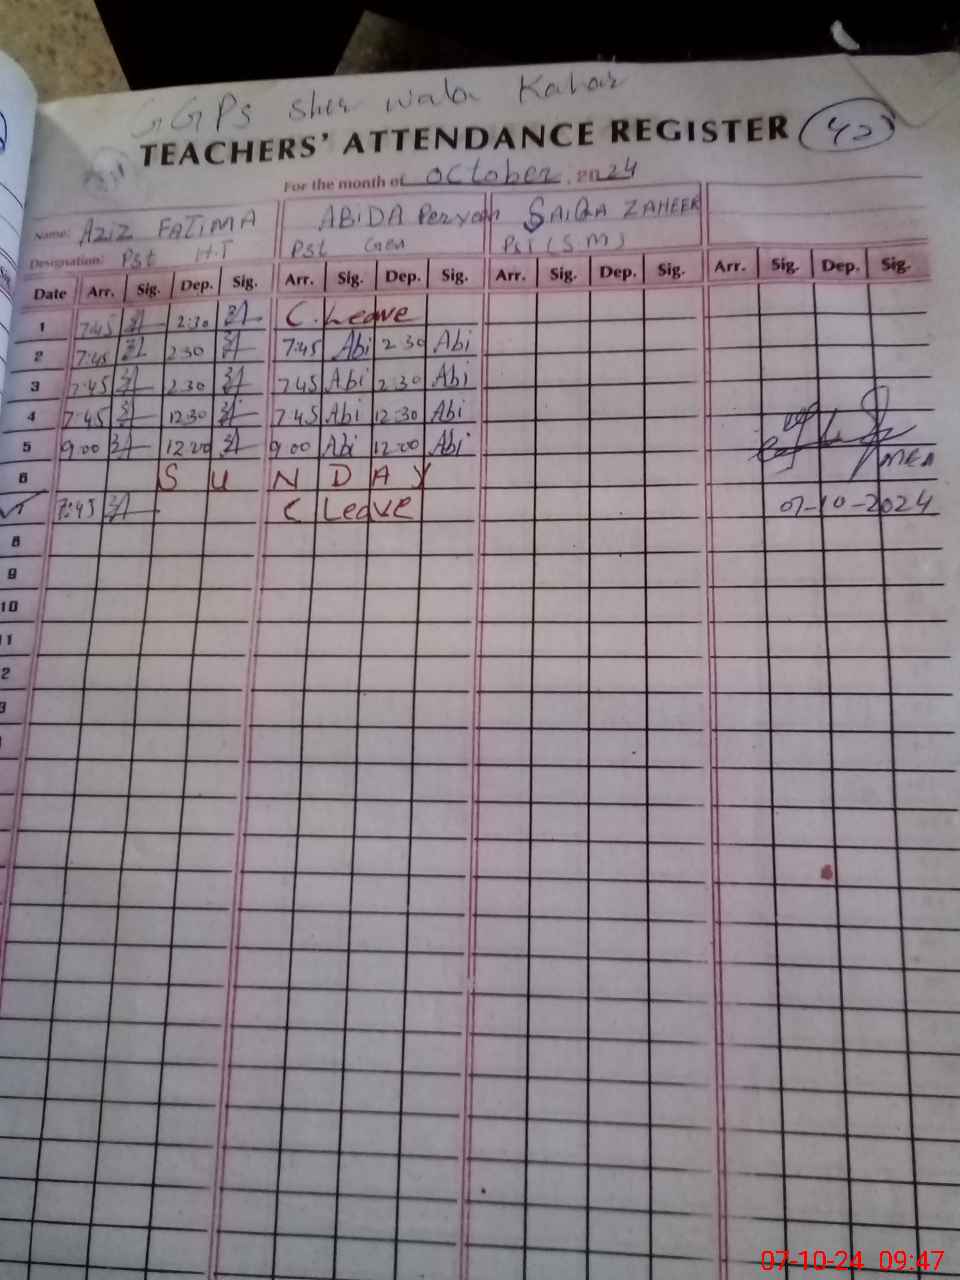 GGPS Sher wala Kahar
TEACHERS' ATTENDANCE REGISTER 42
For the month of October, 2024
Name: AZIZ FATIMA ABIDA Perveen SAIQA ZAHEER
Designation: Pst H.T Pst Gen Pst (S.M)
Date Arr. Sig. Dep. Sig. Arr. Sig. Dep. Sig. Arr. Sig. Dep. Sig. Arr. Sig. Dep. Sig.
1 7:45 2:30 C. Leave
2 7:45 2 30 7:45 Abi 2 30 Abi
3 7:45 2:30 7 45 Abi 2:30 Abi
4 7:45 12:30 7:45 Abi 12:30 Abi
5 9:00 12:00 9 00 Abi 12:00 Abi
6 S U N D A Y MEA
7:45 C Leave 07-10-2024
8
9
10
11
2
3
07-10-24 09:47